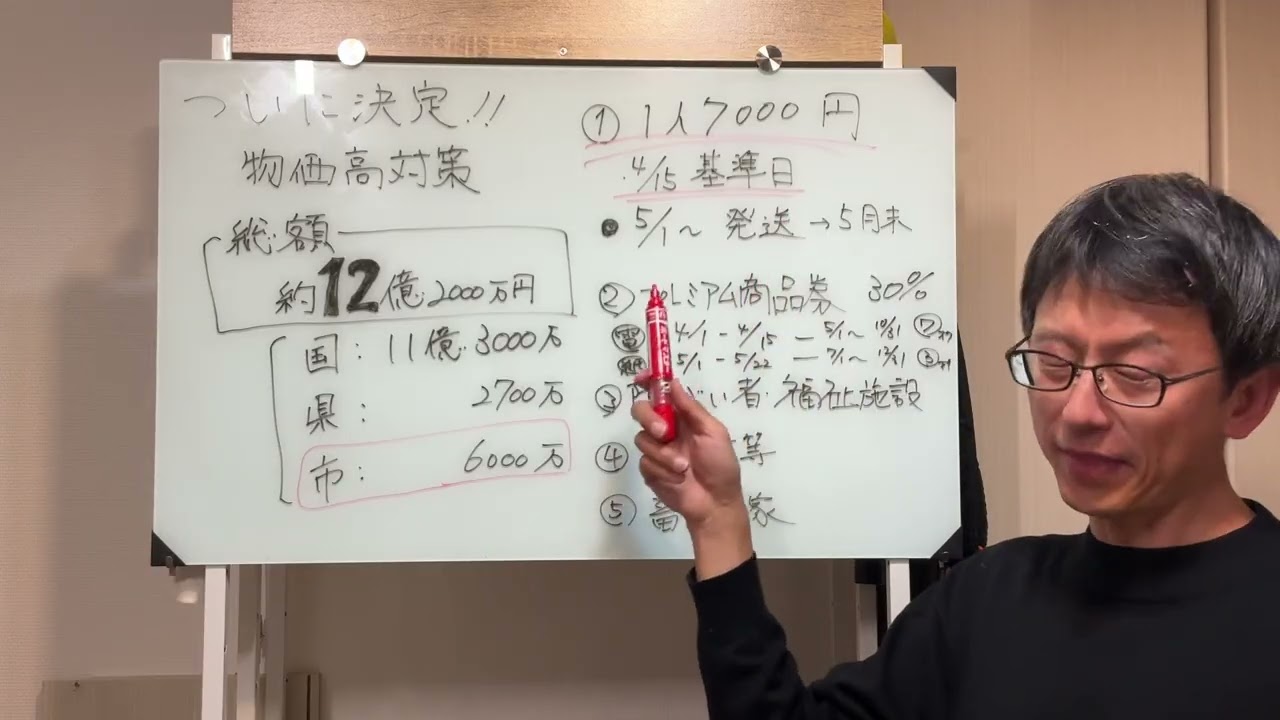 ついに決定!!
物価高対策
総額
約12億2000万円
国: 11億3000万
県: 2700万
市: 6000万
① 1人7000円
4/15 基準日
● 5/1~ 発送→5月末
② プレミアム商品券 30%
電 4/1-4/15 — 5/1~10/31
5/1-5/22 — 7/1~12/31
③ い者・福祉施設
④ 等
⑤ 畜 家